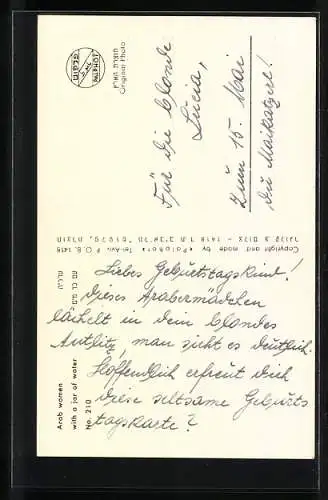 Für die blonde
Lucia,
zum 15. Mai
du Maikatzerl!
Liebes Geburtstagskind!
dieses Arabermädchen
lächelt in dein blondes
Antlitz, man sieht es deutlich.
Hoffentlich erfreut dich
diese seltsame Geburts
tagskarte?
PALPHOT
פלפוט
תוצרת הארץ
Original Photo
Copyright and made by "Palphot" Tel-Aviv P.O.B. 1418
Arab women
with a jar of water
No. 210